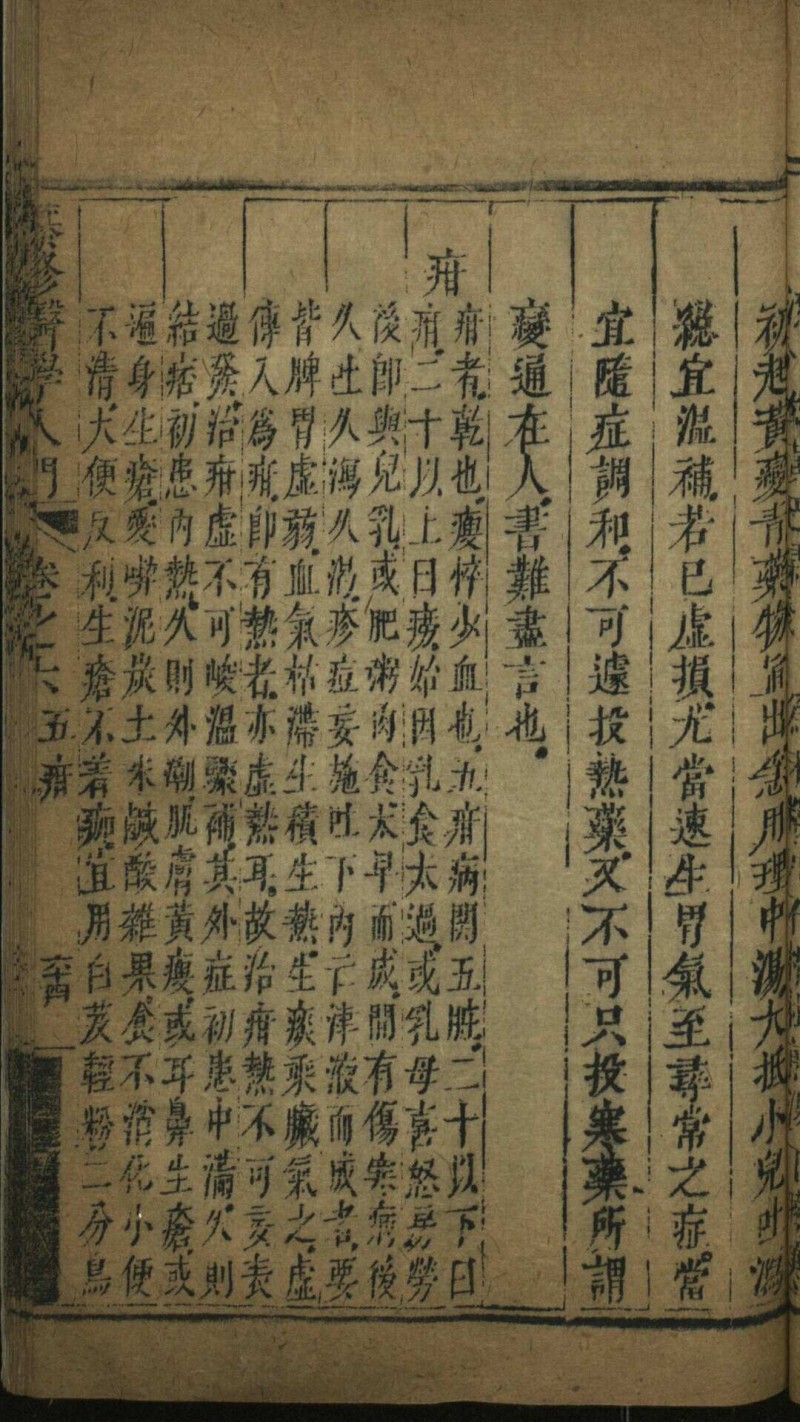 初起黃變青藥物宜出急用理中湯大抵小兒吐瀉
總宜溫補若已虛損尤當速生胃氣至尋常之症當
宜隨症調和不可遽投熱藥又不可只投寒藥所謂
變通在人書難盡言也
疳
疳者乾也瘦悴少血也五疳病関五脏二十以下曰
疳二十以上曰癆始因乳食太過或乳母喜怒房勞
後即與兒乳或肥粥肉食太早而成間有傷寒病後
久吐久瀉久渴疹痘妄施吐下內亡津液而成者要
皆脾胃虛蒻血氣枯滯生積生熱生痰乘臟氣之虛
傳入爲疳即有熱者亦虛熱耳故治疳熱不可妄表
過發治疳虛不可峻溫驟補其外症初患中滿久則
結痞初患內熱久則外潮肌膚黃瘦或耳鼻生瘡或
遍身生瘡愛啣泥炭土米鹹酸雜果食不消化小便
不清大便反利生瘡不着痂宜用白芨輕粉二分鳥
醫學入門 卷之六 五疳 卒四